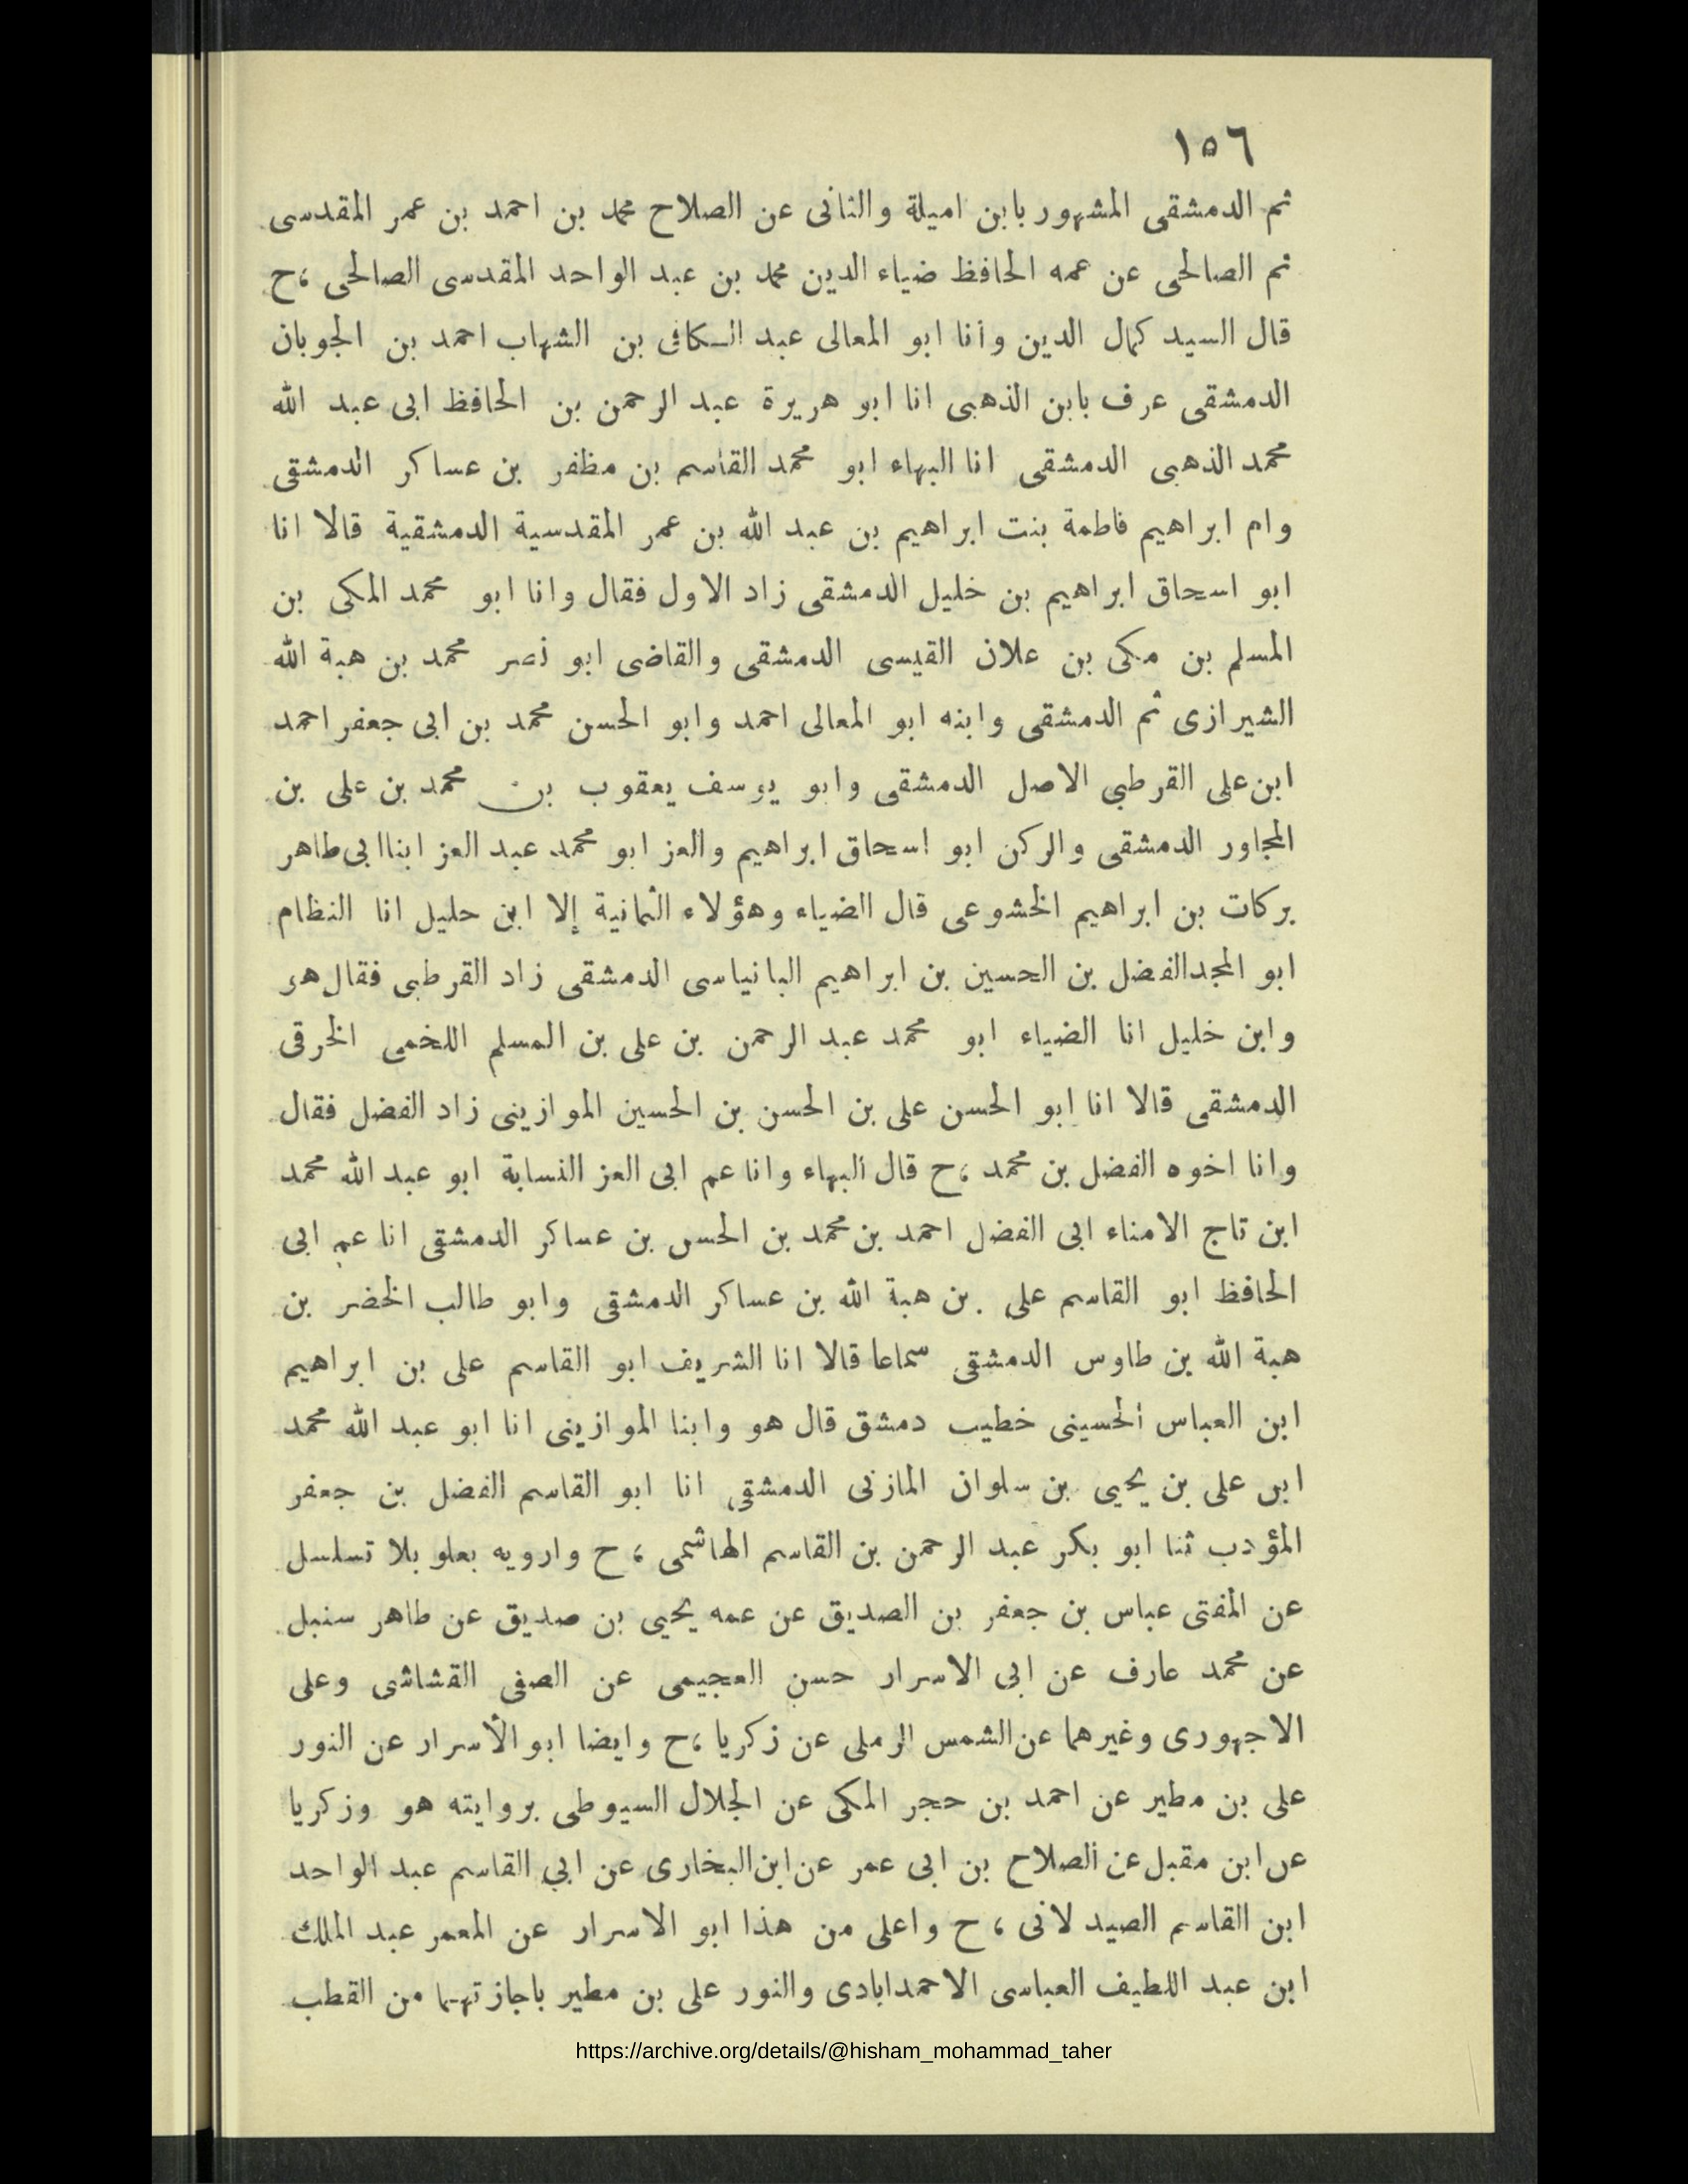 ١٥٦
ثم الدمشقى المشهور بابن اميلة والثانى عن الصلاح محمد بن احمد بن عمر المقدسى
ثم الصالحى عن عمه الحافظ ضياء الدين محمد بن عبد الواحد المقدسى الصالحى ،ح
قال السيد كمال الدين وأنا ابو المعالى عبد الكافى بن الشهاب احمد بن الجوبان
الدمشقى عرف بابن الذهبى انا ابو هريرة عبد الرحمن بن الحافظ ابى عبد الله
محمد الذهبى الدمشقى انا البهاء ابو محمد القاسم بن مظفر بن عساكر الدمشقى
وام ابراهيم فاطمة بنت ابراهيم بن عبد الله بن عمر المقدسية الدمشقية قالا انا
ابو اسحاق ابراهيم بن خليل الدمشقى زاد الاول فقال وانا ابو محمد المكى بن
المسلم بن مكى بن علان القيسى الدمشقى والقاضى ابو نصر محمد بن هبة الله
الشيرازى ثم الدمشقى وابنه ابو المعالى احمد وابو الحسن محمد بن ابى جعفر احمد
ابن على القرطبى الاصل الدمشقى وابو يوسف يعقوب بن محمد بن على بن
المجاور الدمشقى والركن ابو اسحاق ابراهيم والعز ابو محمد عبد العز ابنا ابى طاهر
بركات بن ابراهيم الخشوعى قال الضياء وهؤلاء الثمانية إلا ابن حليل انا النظام
ابو المجد الفضل بن الحسين بن ابراهيم البانياسى الدمشقى زاد القرطبى فقال هو
وابن خليل انا الضياء ابو محمد عبد الرحمن بن على بن المسلم اللخمى الخرقى
الدمشقى قالا انا ابو الحسن على بن الحسن بن الحسين الموازينى زاد الفضل فقال
وانا اخوه الفضل بن محمد ،ح قال البهاء وانا عم ابى العز النسابة ابو عبد الله محمد
ابن تاج الامناء ابى الفضل احمد بن محمد بن الحسن بن عساكر الدمشقى انا عم ابى
الحافظ ابو القاسم على بن هبة الله بن عساكر الدمشقى وابو طالب الخضر بن
هبة الله بن طاوس الدمشقى سماعا قالا انا الشريف ابو القاسم على بن ابراهيم
ابن العباس الحسينى خطيب دمشق قال هو وابنا الموازينى انا ابو عبد الله محمد
ابن على بن يحيى بن سلوان المازنى الدمشقى انا ابو القاسم الفضل بن جعفر
المؤدب ثنا ابو بكر عبد الرحمن بن القاسم الهاشمى ، ح وارويه بعلو بلا تسلسل
عن المفتى عباس بن جعفر بن الصديق عن عمه يحيى بن صديق عن طاهر سنبل
عن محمد عارف عن ابى الاسرار حسن العجيمى عن الصفى القشاشى وعلى
الاجهورى وغيرهما عن الشمس الرملى عن زكريا ،ح وايضا ابو الأسرار عن النور
على بن مطير عن احمد بن حجر المكى عن الجلال السيوطى بروايته هو وزكريا
عن ابن مقبل عن الصلاح بن ابى عمر عن ابن البخارى عن ابى القاسم عبد الواحد
ابن القاسم الصيدلانى ، ح واعلى من هذا ابو الاسرار عن المعمر عبد الملك
ابن عبد اللطيف العباسى الاحمدابادى والنور على بن مطير باجازتهما من القطب
https://archive.org/details/@hisham_mohammad_taher